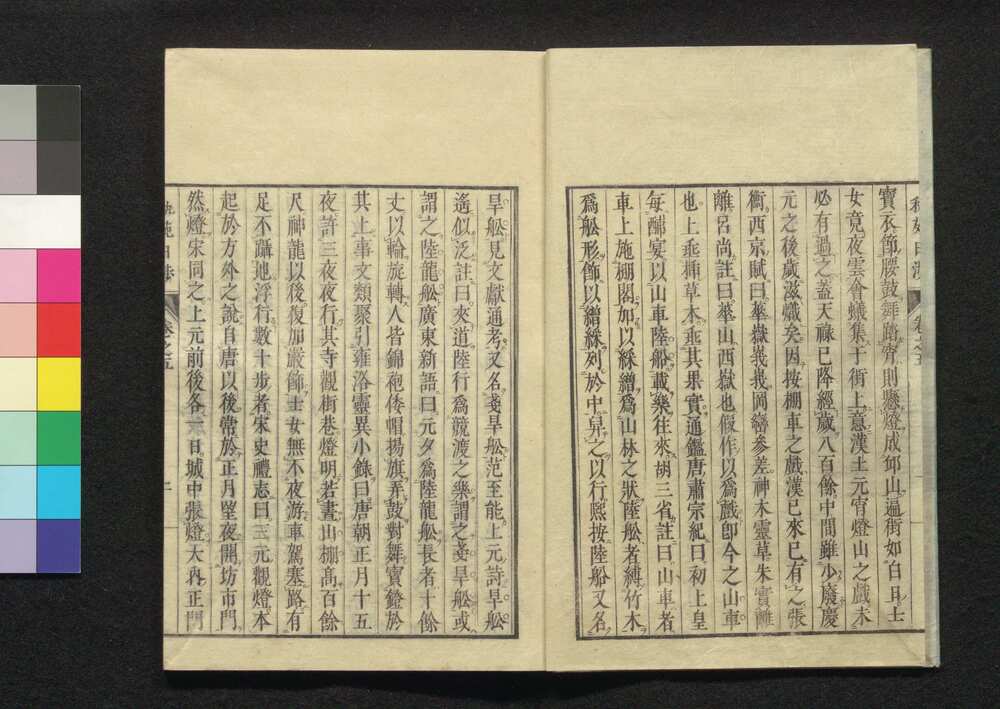 寶衣飾腰鼓舞踏宵則懸燈成邱山逼街如白日士
女竟夜雲會蟻集于街上意漢土元宵燈山之戲未
必有過之蓋天祿已降經歲八百餘中間雖少廢慶
元之後歲滋熾矣因按棚車之戲漢已來已有之張
衡西京賦曰華嶽峩峩岡巒參差神木靈草朱實離
離呂尚註曰華山西嶽也假作以爲戲卽今之山車
也上垂揷草木垂其果實通鑑唐肅宗紀曰初上皇
每酺宴以山車陸船載樂往來胡三省註曰山車者
車上施棚閣加以綵繒爲山林之狀陸船者縛竹木
爲船形飾以繒綵列於中舁之以行熙按陸船又名
旱船見文獻通考又名戔旱船范至能上元詩旱船
遙似泛註曰夾道陸行爲競渡之樂謂之戔旱船或
謂之陸龍船廣東新語曰元夕爲陸龍船長者十餘
丈以輪旋轉人皆錦袍倭帽揚旗弄鼓對舞寳鐙於
其上事文類聚引雍洛靈異小錄曰唐朝正月十五
夜許三夜夜行其寺觀街巷燈明若晝山棚高百餘
尺神龍以後復加嚴飾士女無不夜游車駕塞路有
足不躡地浮行數十步者宋史禮志曰三元觀燈本
起於方外之說自唐以後常於正月望夜開坊市門
然燈宋同之上元前後各一日城中張燈大內正門
卷之五
二